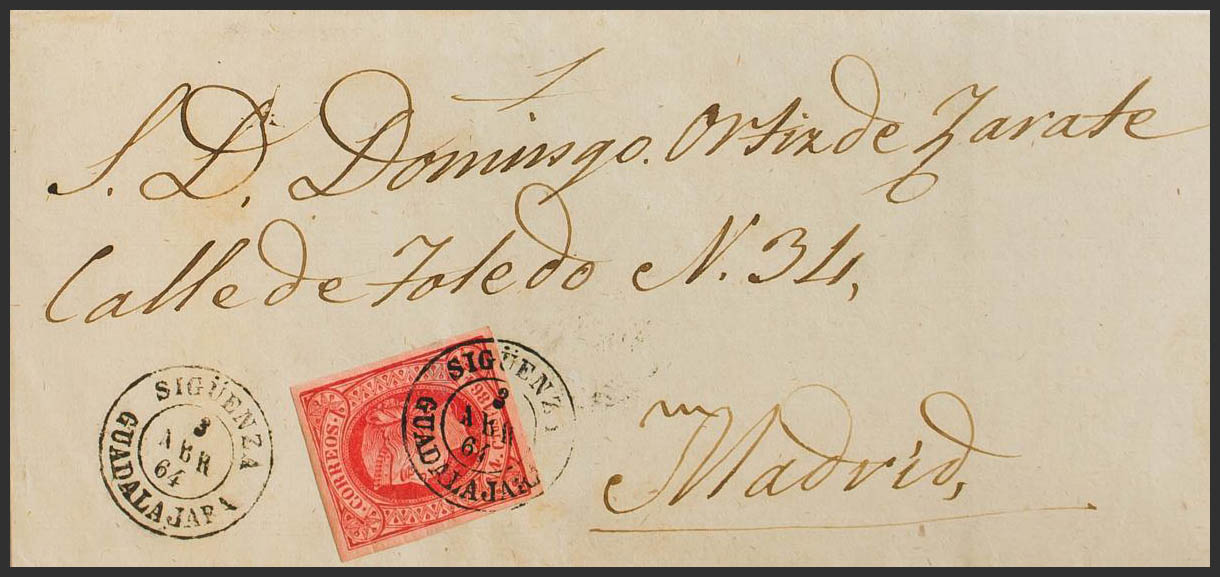 S. D. Domingo. Ortiz de Zarate
Calle de Toledo N. 34,
Madrid,
SIGÜENZA
3
ABR
64
GUADALAJARA
CORREOS.
SIGÜENZA
3
ABR
64
GUADALAJARA